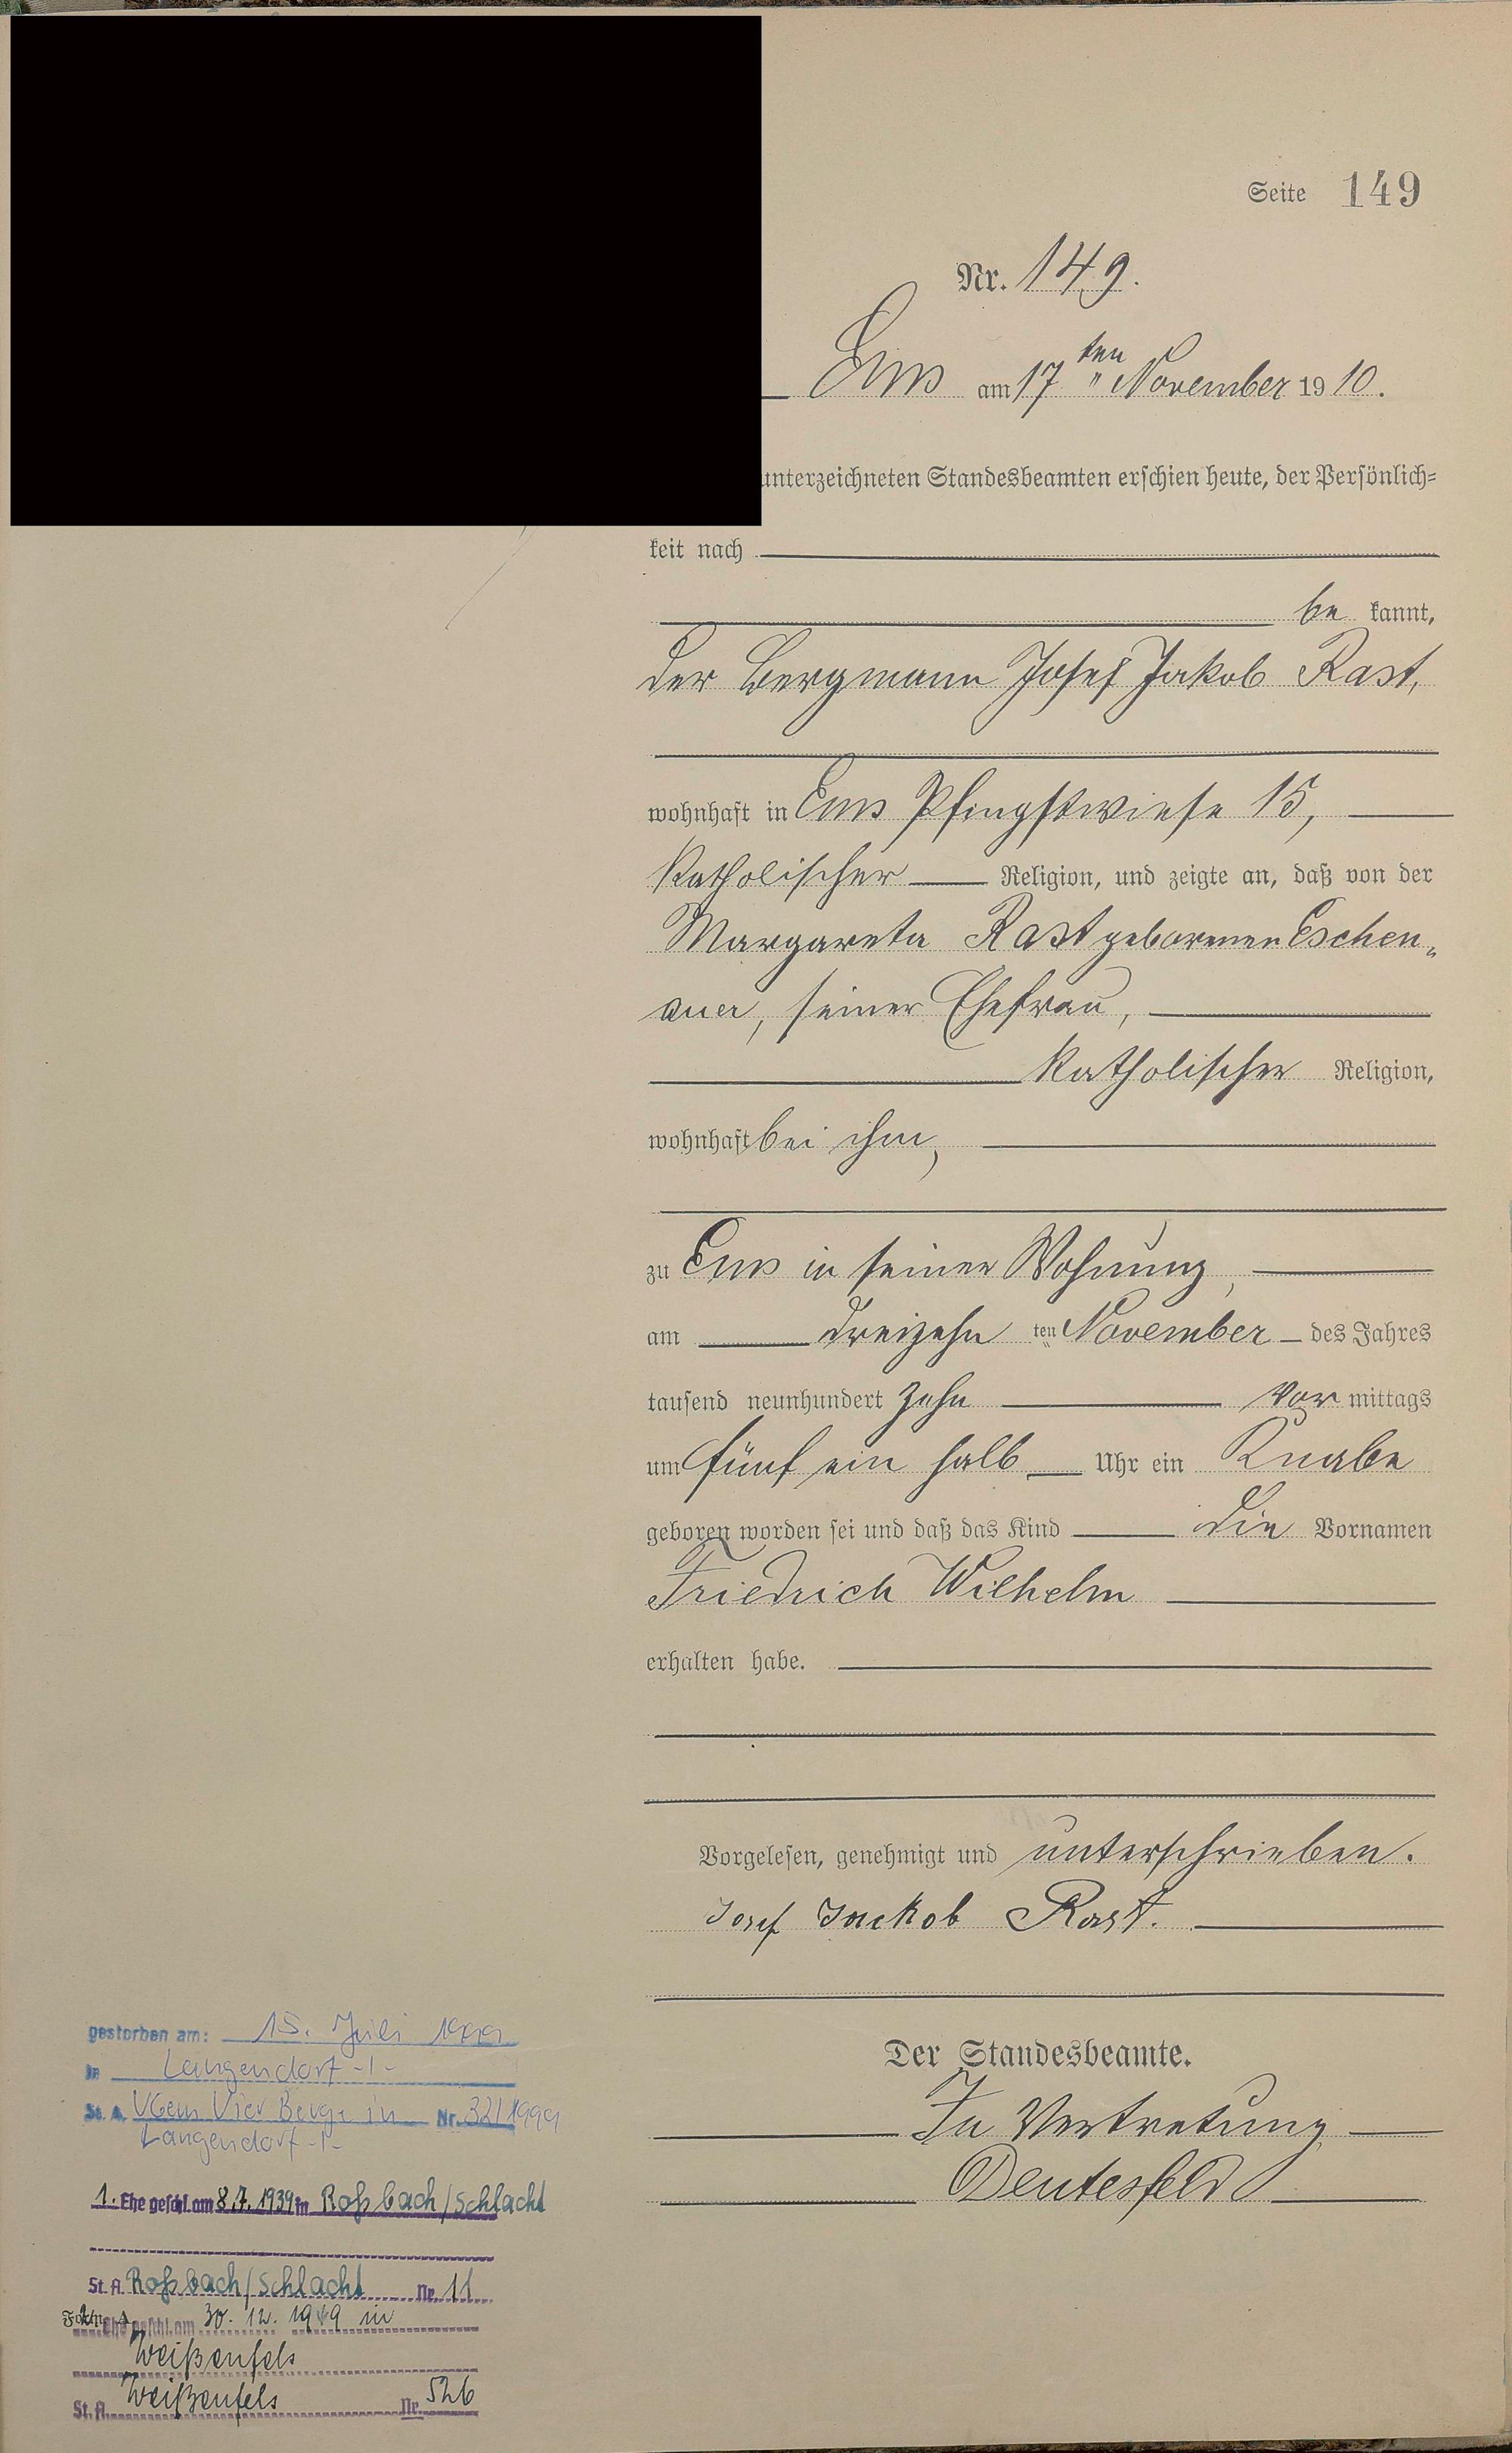 Seite 149
Nr. 149.
Ems am 17ten November 1910.
unterzeichneten Standesbeamten erschien heute, der Persönlich=
keit nach
be kannt,
der Bergmann Josef Jakob Rast,
wohnhaft in Ems Pfingstwiese 15,
katholischer Religion, und zeigte an, daß von der
Margareta Rast geborenen Eschen„
auer, seiner Ehefrau,
katholischer Religion,
wohnhaft bei ihm,
zu Ems in seiner Wohnung,
am dreizehn ten November des Jahres
tausend neunhundert zehn Vor mittags
um fünf ein halb Uhr ein Knabe
geboren worden sei und daß das Kind die Vornamen
Friedrich Wilhelm
erhalten habe.
Vorgelesen, genehmigt und unterschrieben.
Josef Jackob Rast.
Der Standesbeamte.
In Vertretung
Deutesfeld
gestorben am: 15. Juli 1999
in Langendorf -1-
St. A. VGem Vier Berge in Nr. 32/1999
Langendorf -1-
1. Ehe geschl. am 8.7.1939 in Roßbach/Schlacht
St. A. Roßbach/Schlacht Nr. 11
Ehe geschl. am 30. 12. 1949 in
Weißenfels
St. A. Weißenfels Nr. 526